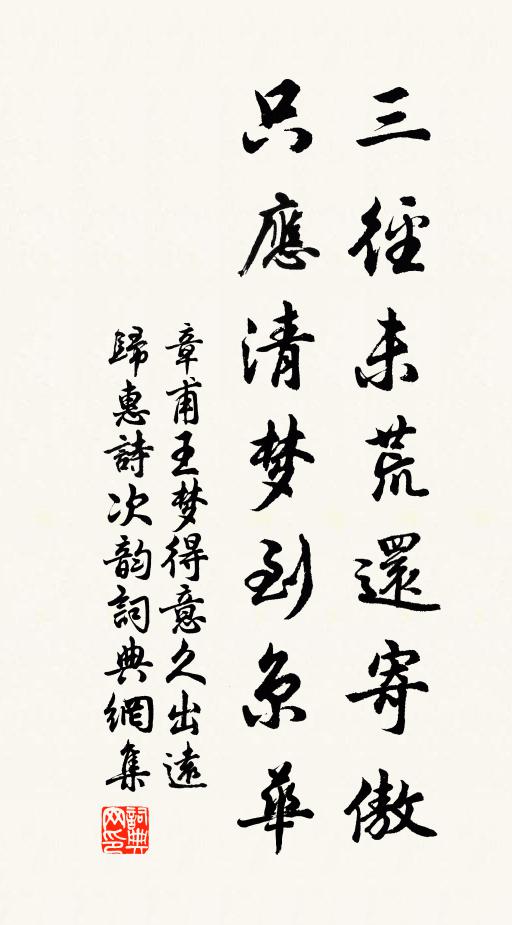 三徑未荒還寄傲
只應清梦到京華
章甫王梦得意久出遠
歸惠詩次韵詞典網集
詞典网印